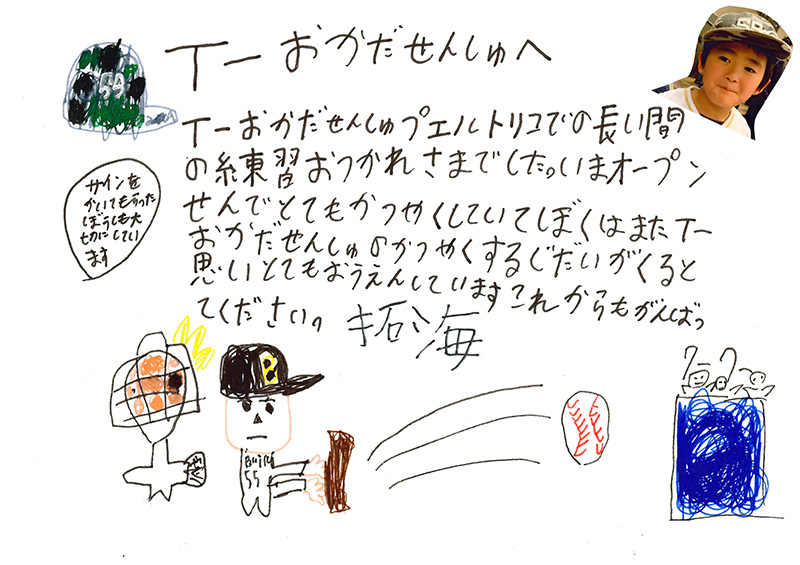 T-おかだせんしゅへ
T-おかだせんしゅプエルトリコでの長い間
の練習おつかれさまでした。いまオープン
せんでとてもかつやくしていてぼくはまたT-
おかだせんしゅのかつやくするじだいがくると
思いとてもおうえんしていますこれからもがんばっ
てください。 拓海
サインを
かいてもらった
ぼうしも大
切にしてい
ます
B
55
ワーワー